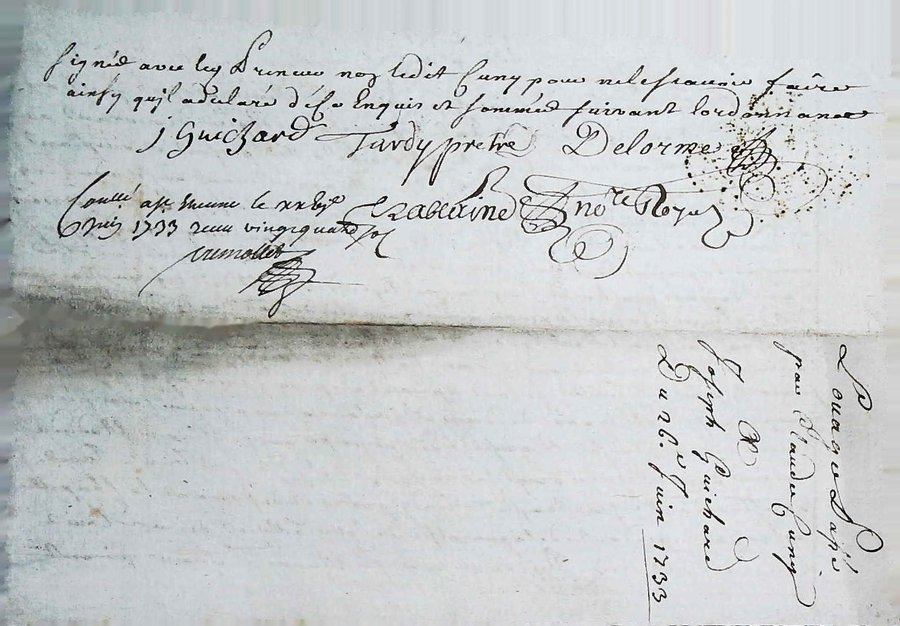 signé avec les Primu non ledit Cuny pour ne le scavoir faire
ainsy quil a declaré d'e Enquis et sommé suivant lordonnance
j Guichard Tardy pretre Delorme
Conllé a le xxbj
Juin 1733 receu vingt quatre sol
Rabeirine nore Royal
Louage
par Claude Cuny
A
Joseph Guichard
Du 26e Juin 1733